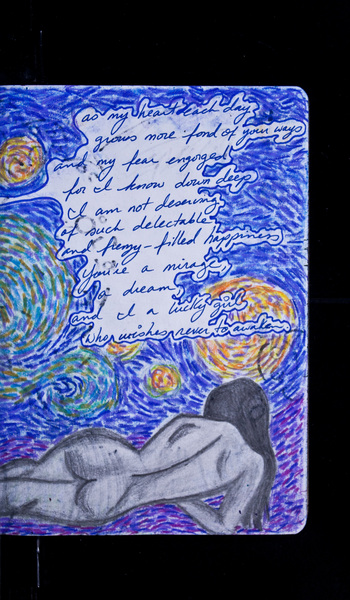 as my heart each day
grows more fond of your ways
and my fear engorged
for I know down deep
I am not deserving
of such delectable
and frenzy-filled happiness
You're a mirage,
a dream,
and I a lucky girl
who wishes never to awaken